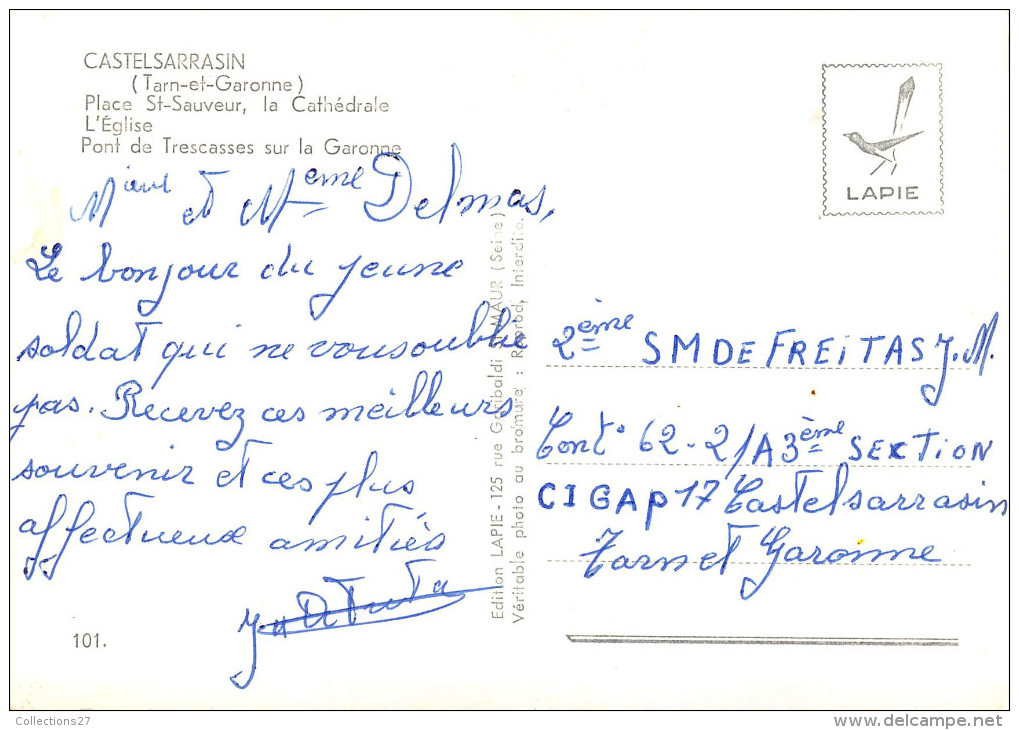 CASTELSARRASIN
(Tarn-et-Garonne)
Place St-Sauveur, la Cathédrale
L'Église
Pont de Trescasses sur la Garonne
LAPIE
Mieur et Meme Delmas,
Le bonjour du jeune
soldat qui ne vousoublie
pas. Recevez ces meilleurs
souvenir et ces plus
affectueux amitiés
101.
Edition LAPIE - 125 rue Garibaldi St MAUR (Seine)
Véritable photo au bromure : Reprod, Interdite.
2ème SM DE FREiTAS J.M.
Cont. 62-2/A 3ème SEcTiON
CIGAP17 Castelsarrasin
Tarn et Garonne
Collections27
www.delcampe.net